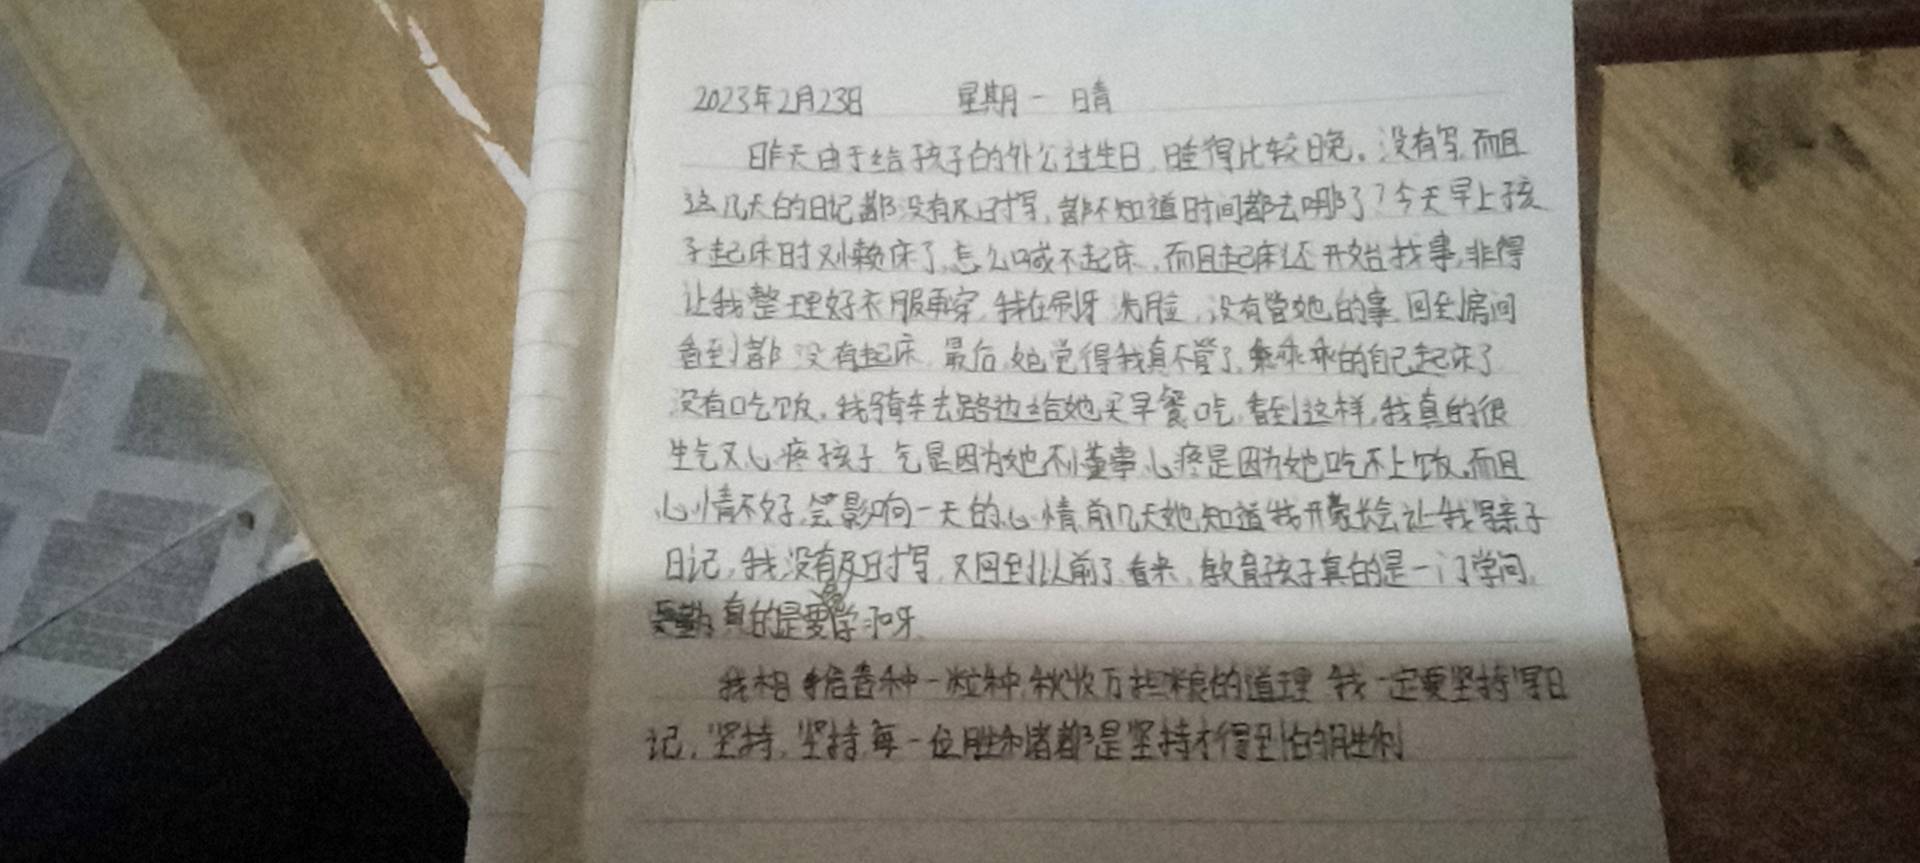 2023年2月23日 星期一 晴
昨天由于给孩子的外公过生日,睡得比较晚。没有写,而且
这几天的日记都没有及时写,都不知道时间都去哪了?今天早上孩
子起床时又赖床了,怎么喊不起床,而且起床还开始找事,非得
让我整理好衣服再穿,我在刷牙洗脸,没有管她的事,回到房间
看到都没有起床,最后,她觉得我真不管了,乖乖的自己起床了
没有吃饭,我骑车去路边给她买早餐吃,看到这样,我真的很
生气又心疼孩子,气是因为她不懂事,心疼是因为她吃不上饭,而且
心情不好,会影响一天的心情,前几天她知道我开家长会让我写亲子
日记,我没有及时写,又回到以前了,看来,教育孩子真的是一门学问,
真的是要学习呀
我相信春种一粒种,秋收万担粮的道理,我一定要坚持写日
记,坚持,坚持,每一位胜利者都是坚持才得到的胜利